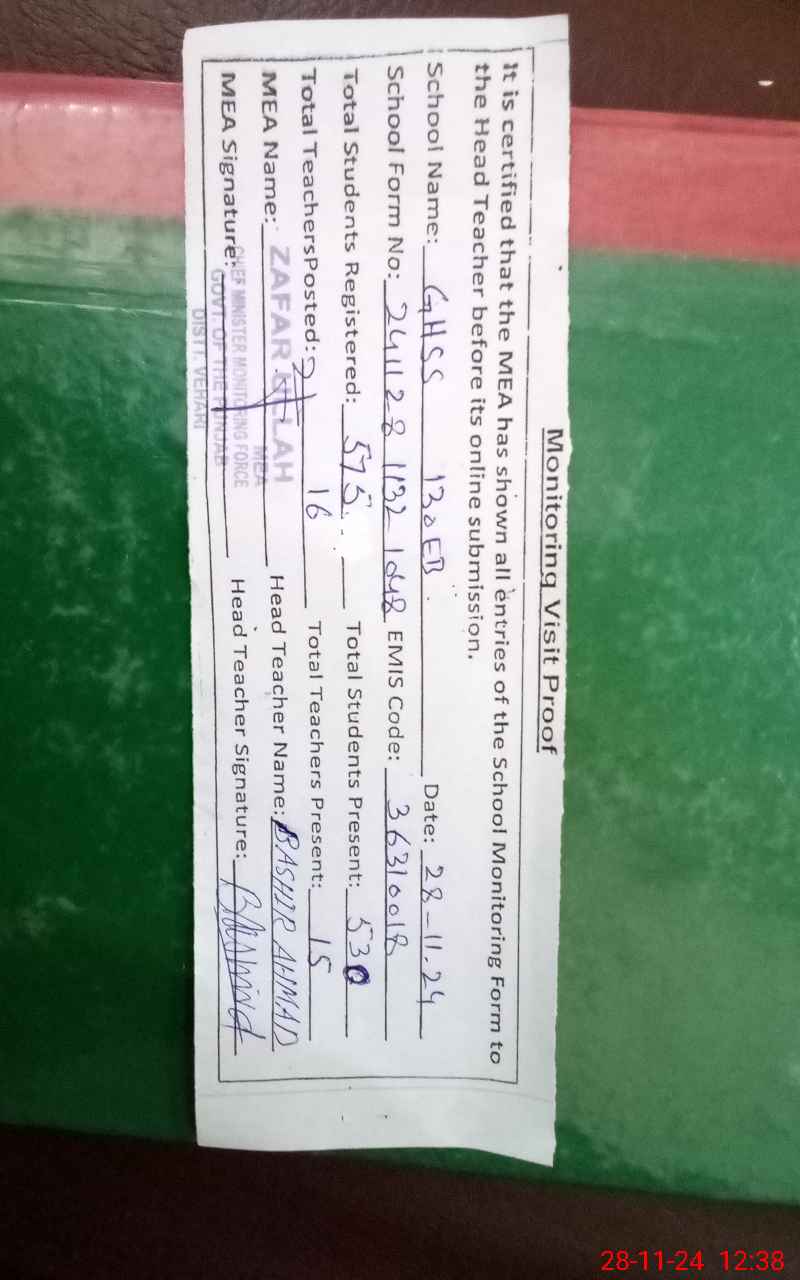 Monitoring Visit Proof
It is certified that the MEA has shown all entries of the School Monitoring Form to
the Head Teacher before its online submission.
School Name: GHSS 130EB. Date: 28-11.24
School Form No: 241128 1132 1048 EMIS Code: 36310018
Total Students Registered: 575 Total Students Present: 530
Total TeachersPosted: 16 Total Teachers Present: 15
MEA Name: ZAFAR ULLAH Head Teacher Name: BASHIR AHMAD
MEA
MEA Signature: Head Teacher Signature:
CHIEF MINISTER MONITORING FORCE
GOVT. OF THE PUNJAB
DISTT. VEHARI
28-11-24 12:38